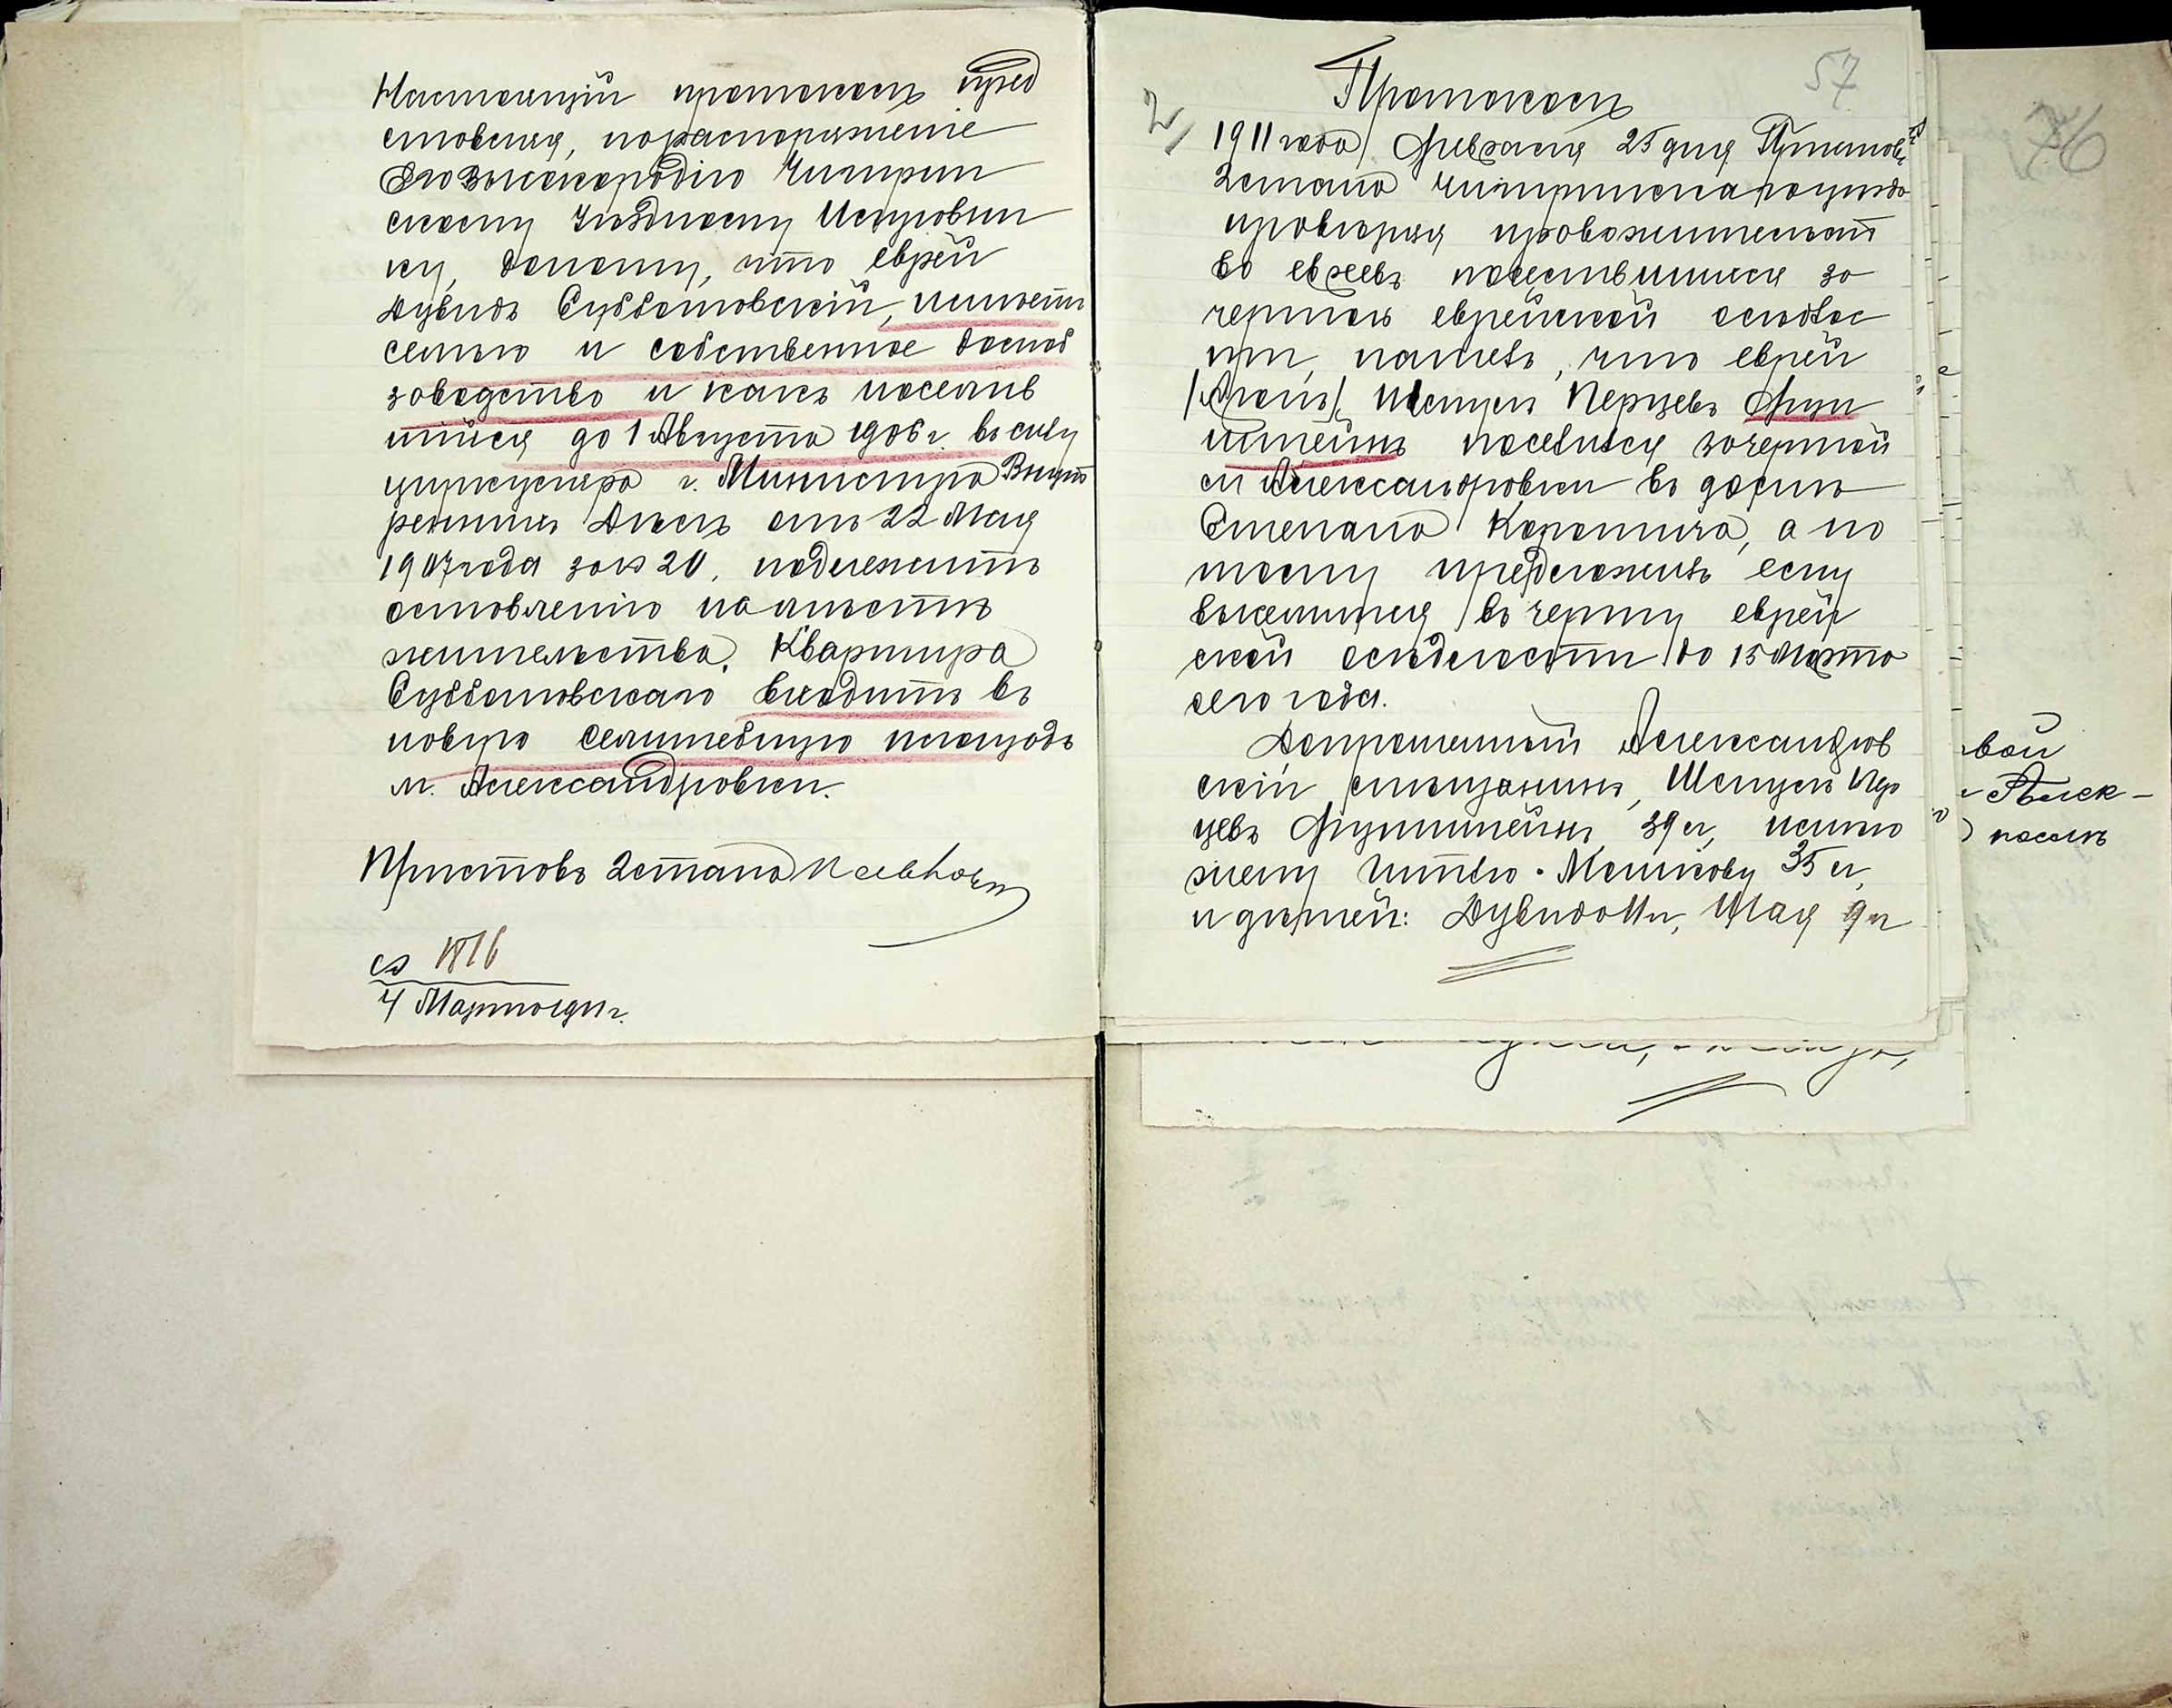 Настоящій протоколъ пред
ставляя, по распоряженію
Его Высокородію Чигирин
скому Уѣздному Исправни
ку, доношу, что еврей
Дувидъ Субботовскій, имѣетъ
семью и собственное домооб
заводство и какъ поселив
шійся до 1 Августа 1906 г. въ силу
циркуляра г. Министра Внут
реннихъ Дѣлъ отъ 22 Мая
1907 года за № 20, подлежитъ
оставленію на мѣстѣ
жительства. Квартира
Субботовскаго входитъ въ
новую селитебную площадь
м. Александровки.
Приставъ 2 стана
№ 1816
4 Марта 1911 г.
57
Протоколъ
2/
1911 года Февраля 25 дня Приставъ
2 стана Чигиринскаго уѣзда
провѣряя правожительст
во евреевъ поселившихся за
чертой еврейской осѣдлос
ти, нашелъ, что еврей
Шмуль Перцевъ Фун
штейнъ поселился за чертой
м. Александровки въ домѣ
Степана Коротича, а по
тому предложилъ ему
выселиться въ черту еврей
ской осѣдлости до 15 Марта
сего года.
Допрошенный Александров
скій мѣщанинъ, Шмуль Пер
цевъ Фунштейнъ 39 л, имѣю
жену 35 л,
и дѣтей: Дувида 11 л, 9 л
76
вой
Алек-
посел